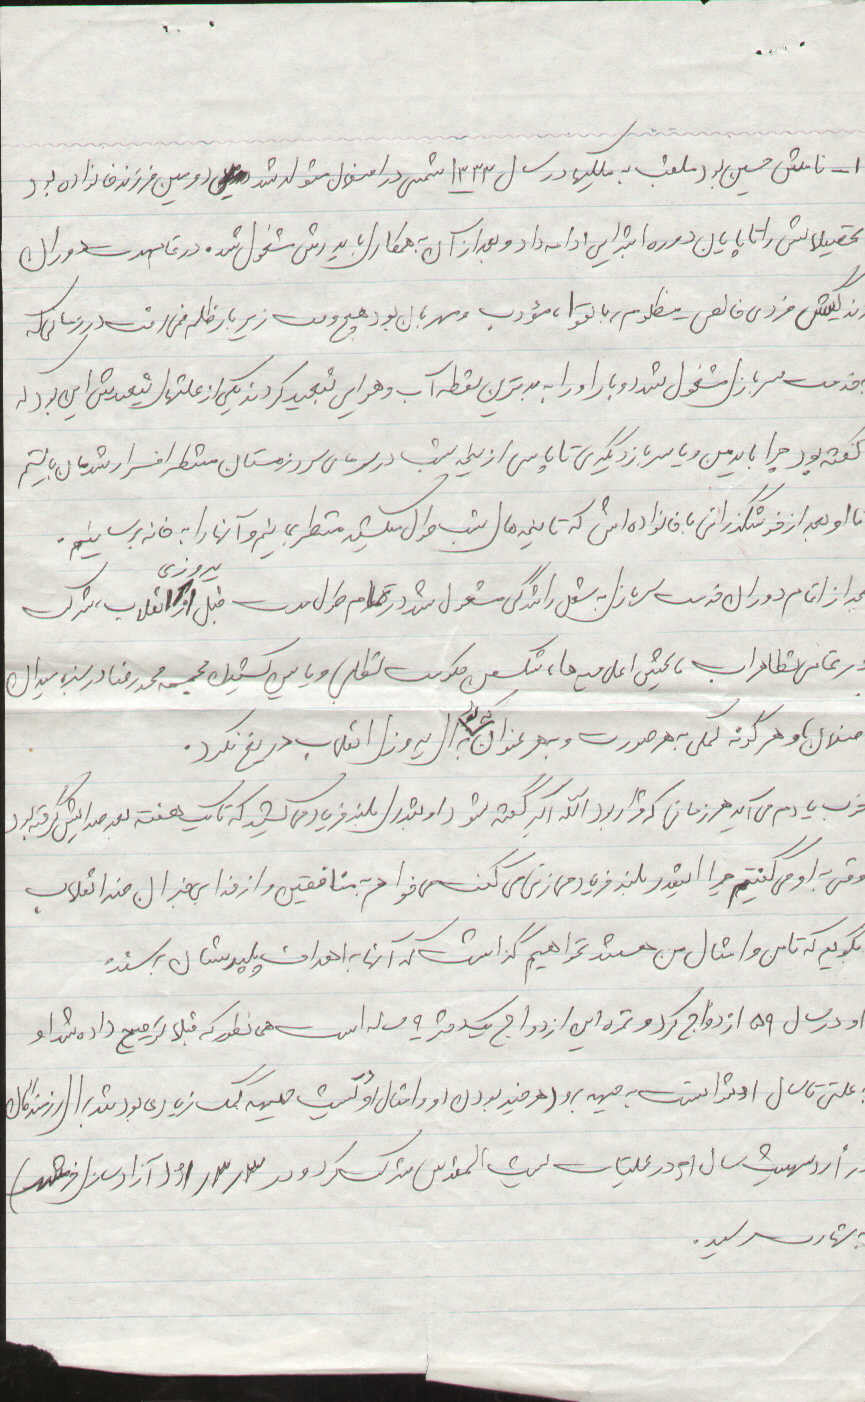 ۱- نامش حسین بود ملقب به ملکیها در سال ۱۳۳۳ شمسی در اصفهان متولد شد دومین فرزند خانواده بود
تحصیلاتش را تا پایان دوره ابتدایی ادامه داد و بعد از آن به همکاری با پدرش مشغول شد. در تمام مدت دوران
زندگیش فردی خالص - مظلوم، باتقوا، مؤدب و مهربان بود هیچ وقت زیر بار ظلم نمی‌رفت در زمانی که
به خدمت سربازی مشغول شد دوبار او را به بدترین نقطه آب و هوایی تبعید کردند یکی از علتهای تبعیدش این بود که
گفته بود چرا باید من و یا سرباز دیگری تا پاسی از نیمه شب در سرمای سرد زمستان منتظر افسر ارشدمان باشیم
تا او بعد از خوشگذرانی با خانواده‌اش که تا نیمه‌های شب طول میکشید منتظر بمانیم و آنها را به خانه برسانیم.
بعد از اتمام دوران خدمت سربازی به شغل رانندگی مشغول شد در تمام طول مدت قبل از پیروزی انقلاب، شرکت
در تمامی تظاهرات، پخش اعلامیه‌ها، شکستن حکومت نظامی و پایین کشیدن مجسمه محمدرضا در میدان
و هر گونه کمکی به هر صورت و به هر عنوان که برای پیروزی انقلاب دریغ نکرد.
خوب یادم می‌آید هر زمانی که قرار بود الله اکبر گفته شود او بقدری بلند فریاد می‌کشید که تا یک هفته بعد صدایش گرفته بود
وقتی به او می‌گفتیم چرا اینقدر بلند فریاد می‌زنی می‌گفت می‌خواهم به منافقین و از خدا بی‌خبران ضد انقلاب
بگویم که تا من و امثال من هستند نخواهیم گذاشت که آنها به اهداف پلیدشان برسند.
او در سال ۵۹ ازدواج کرد و ثمره این ازدواج یک دختر ۹ ساله است همانطور که قبلا توضیح داده شد او
به علتی تا سال نتوانست به جبهه برود (هر چند بودن او و امثال او در پشت جبهه کمک زیادی بود برای رزمندگان
در اردیبهشت سال ۶۱ در عملیات بیت المقدس شرکت کرد و در ۳/۳/۶۱ (آزادسازی خرمشهر)
به شهادت رسید.